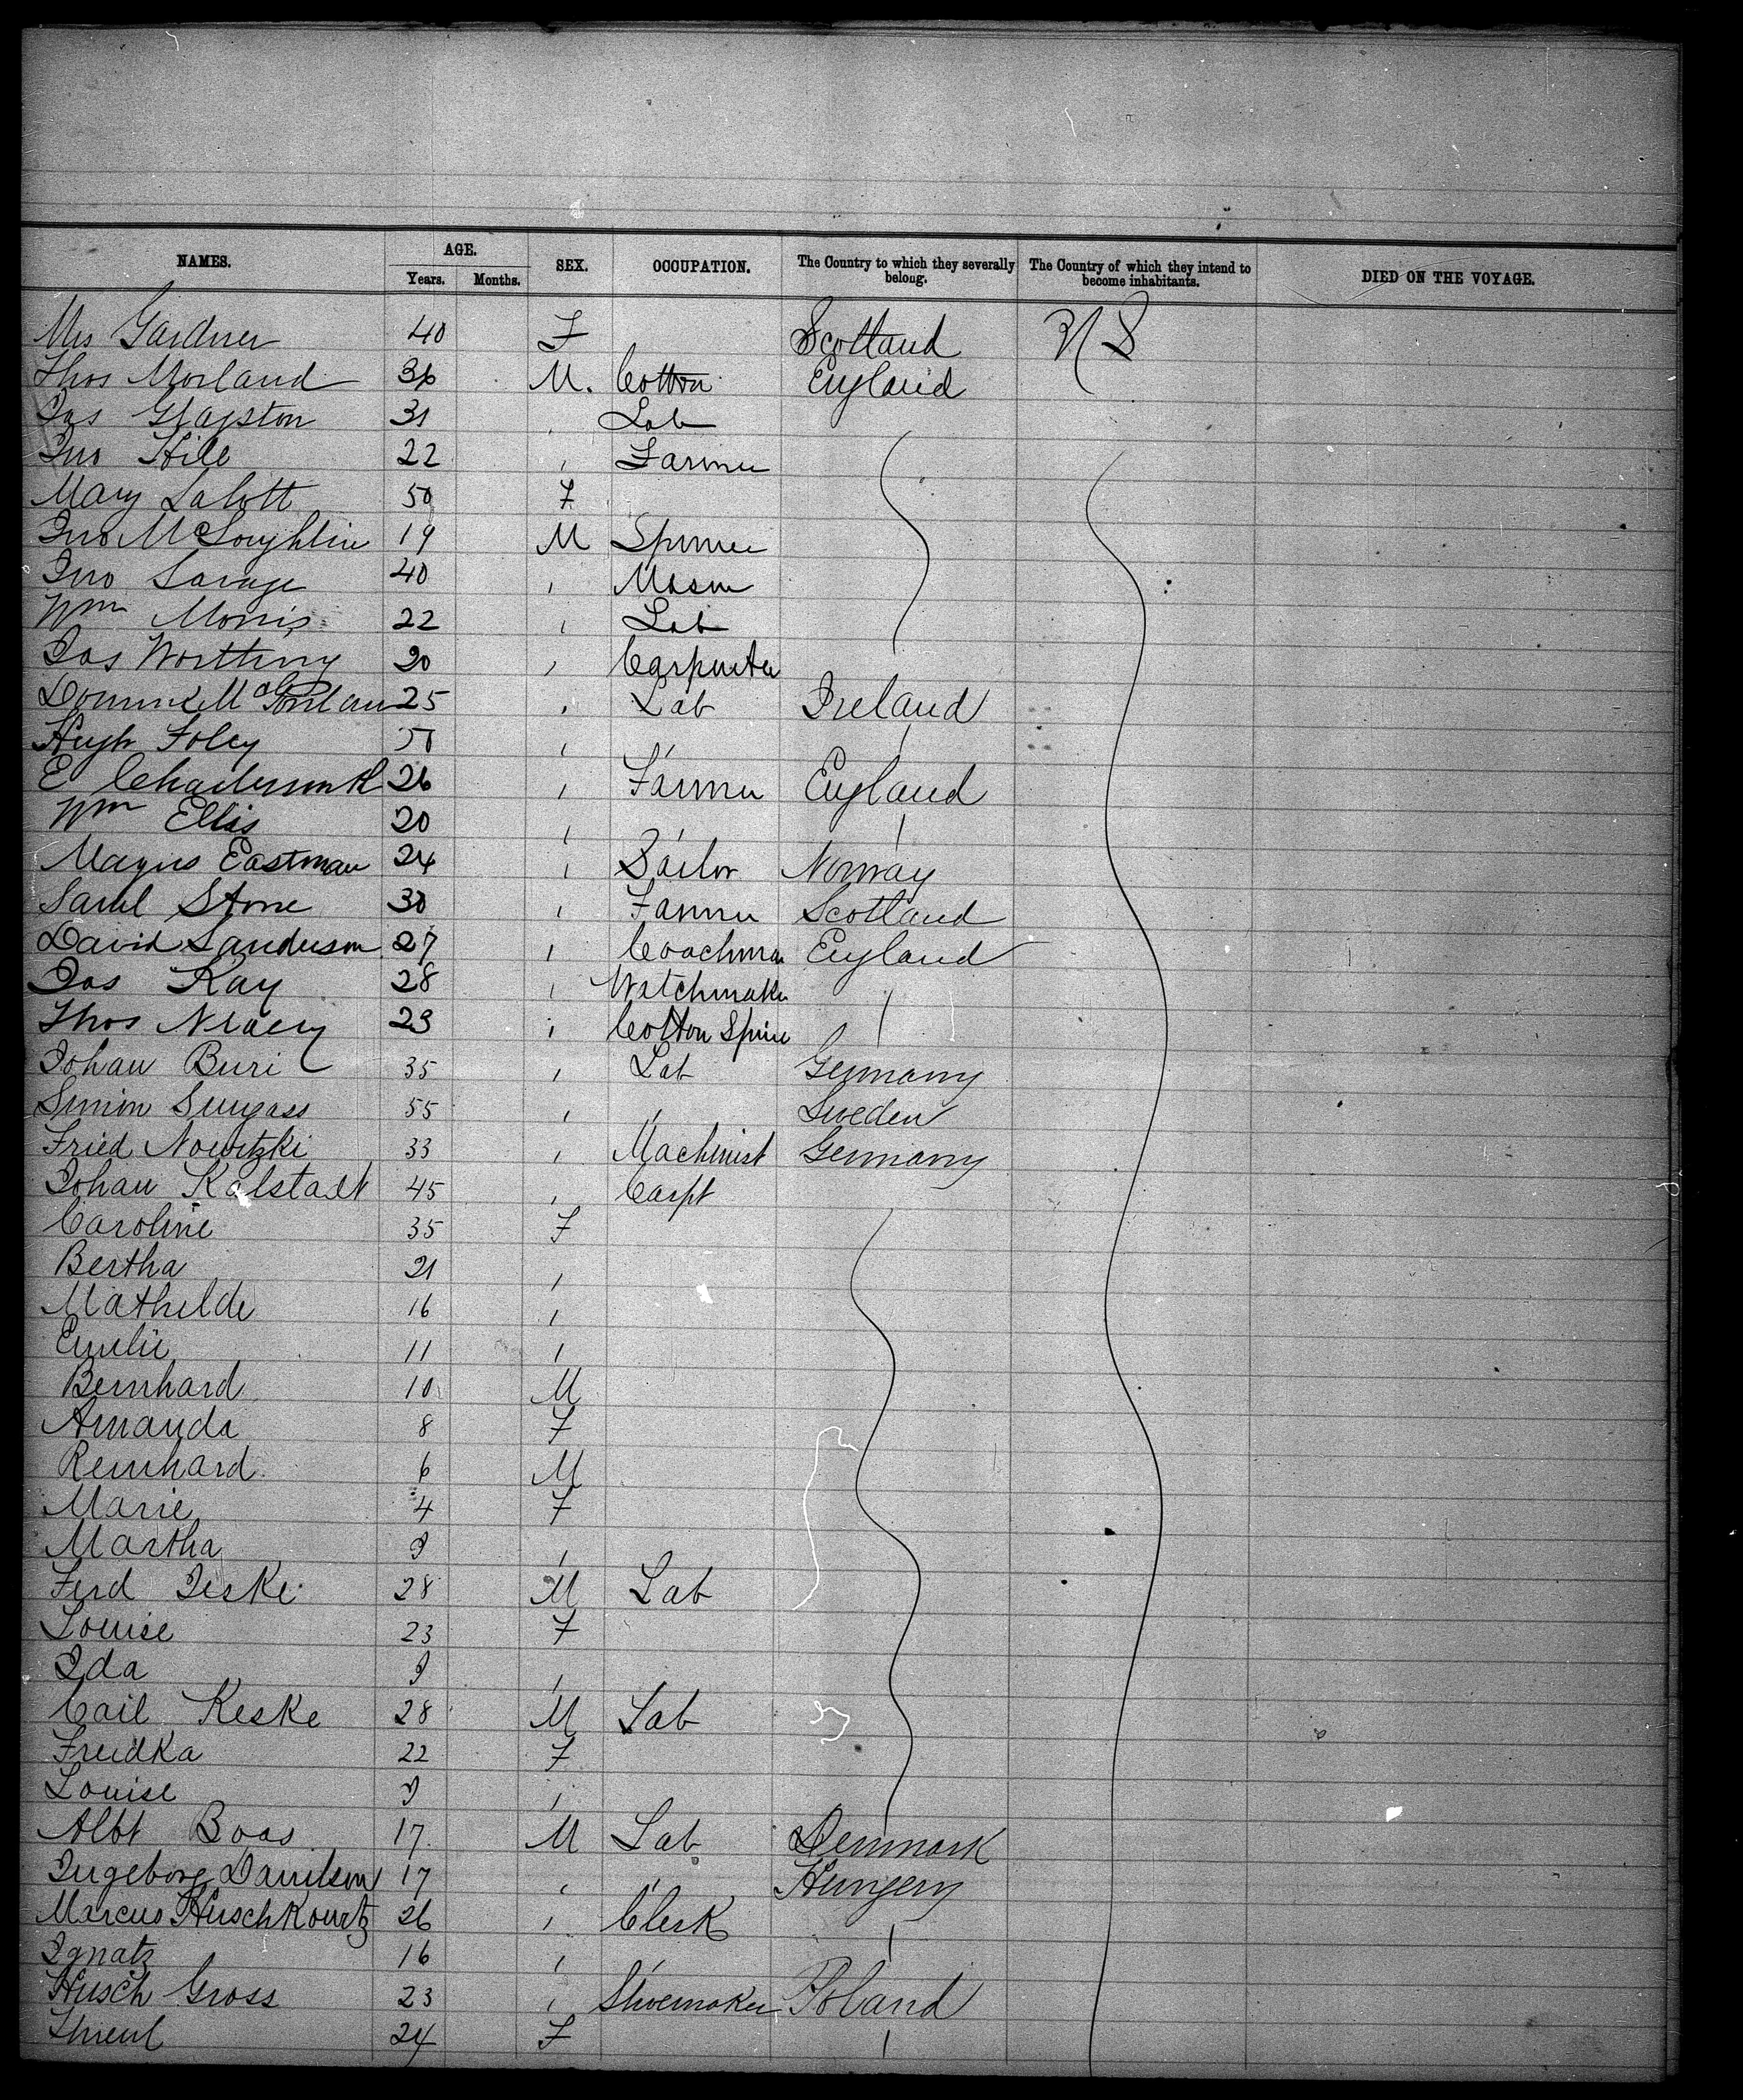 NAMES. AGE. SEX. OCCUPATION. The Country to which they severally belong. The Country of which they intend to become inhabitants. DIED ON THE VOYAGE.
Years. Months.
Mrs Gardner 40 F Scotland U S
Thos Morland 36 M. Cotton England
Jas Glapston 31 , Lab
Jno Hill 22 , Farmer
Mary Labott 50 F
Jno McLoughlin 19 M Spinner
Jno Savage 40 , Mason
Wm Morris 22 , Lab
Jas Worthing 20 , Carpenter
Dominck 25 , Lab Ireland
Hugh Foley , , ,
E 26 , Farmer England
Wm Ellis 20 , , ,
Magnus Eastman 24 , Sailor Norway
Saml Stone 30 , Farmer Scotland
David Sanderson 27 , Coachma England
Jas Kay 28 , Watchmaker ,
Thos 23 , Cotton Spine
Johan Buri 35 , Lab Germany
Simon 55 , , Sweden
Fried Nowitzki 33 , Machinist Germany
Johan Kalstadt 45 , Carpt
Caroline 35 F
Bertha 21 ,
Mathilde 16 ,
Emelie 11 ,
Bernhard 10 M
Amanda 8 F
Reinhard 6 M
Marie 4 F
Martha ,
Ferd Jeske 28 M Lab
Louise 23 F
Ida ,
Carl Keske 28 M Lab
Freidka 22 F
Louise ,
Albt Boas 17 M Lab Denmark
Ingeborg Danilson 17 , , Hungery
Marcus Hirschkowitz 26 , Clerk ,
Ignatz 16 , ,
Hirsch Gross 23 , Shoemaker Poland
24 F ,